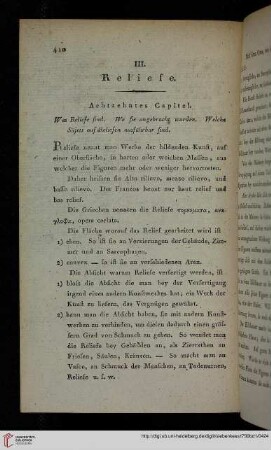 410
III.
Reliefe.
Achtzehntes Capitel.
Was Reliefe sind. Wo sie angebracht werden. Welche
Reliefe nennt man Werke der bildenden Kunst, auf
einer Oberfläche, in harten oder weichen Massen, aus
welcher die Figuren mehr oder weniger hervorstehen.
Daher heissen sie Alto rilievo, mezzo rilievo, und
basso rilievo. Die Franzos. heut relief und
bas relief.
Die Griechen nennen die Reliefe
opera coelata.
Die Fläche worauf das Relief gearbeitet wird ist
1) eben. So ist sie an Verzierungen der Gebäude,
und an Sarcophagen.
2) convex. — So ist sie an verschiedenen Aren.
Die Absicht warum Reliefe verfertigt werden, ist
1) bloß die Absicht die man bey der Verfertigung
irgend eines andern Kunstwerkes hat, ein Werk der
Kunst zu liefern, das Vergnügen gewährt.
2) kann man die Absicht haben, sie mit andern Kunst-
werken zu verbinden, um diesen dadurch einen grös-
sern Grad von Schmuck zu geben. So wendet man
die Reliefe bey Gebäuden an, als Zierrathen an
Friesen, Säulen, — So macht man an
Vasen, an Schmuck der Menschen, an Postamenten,
Reliefe u. s. w.
UNIVERSITÄTS-
BIBLIOTHEK
HEIDELBERG